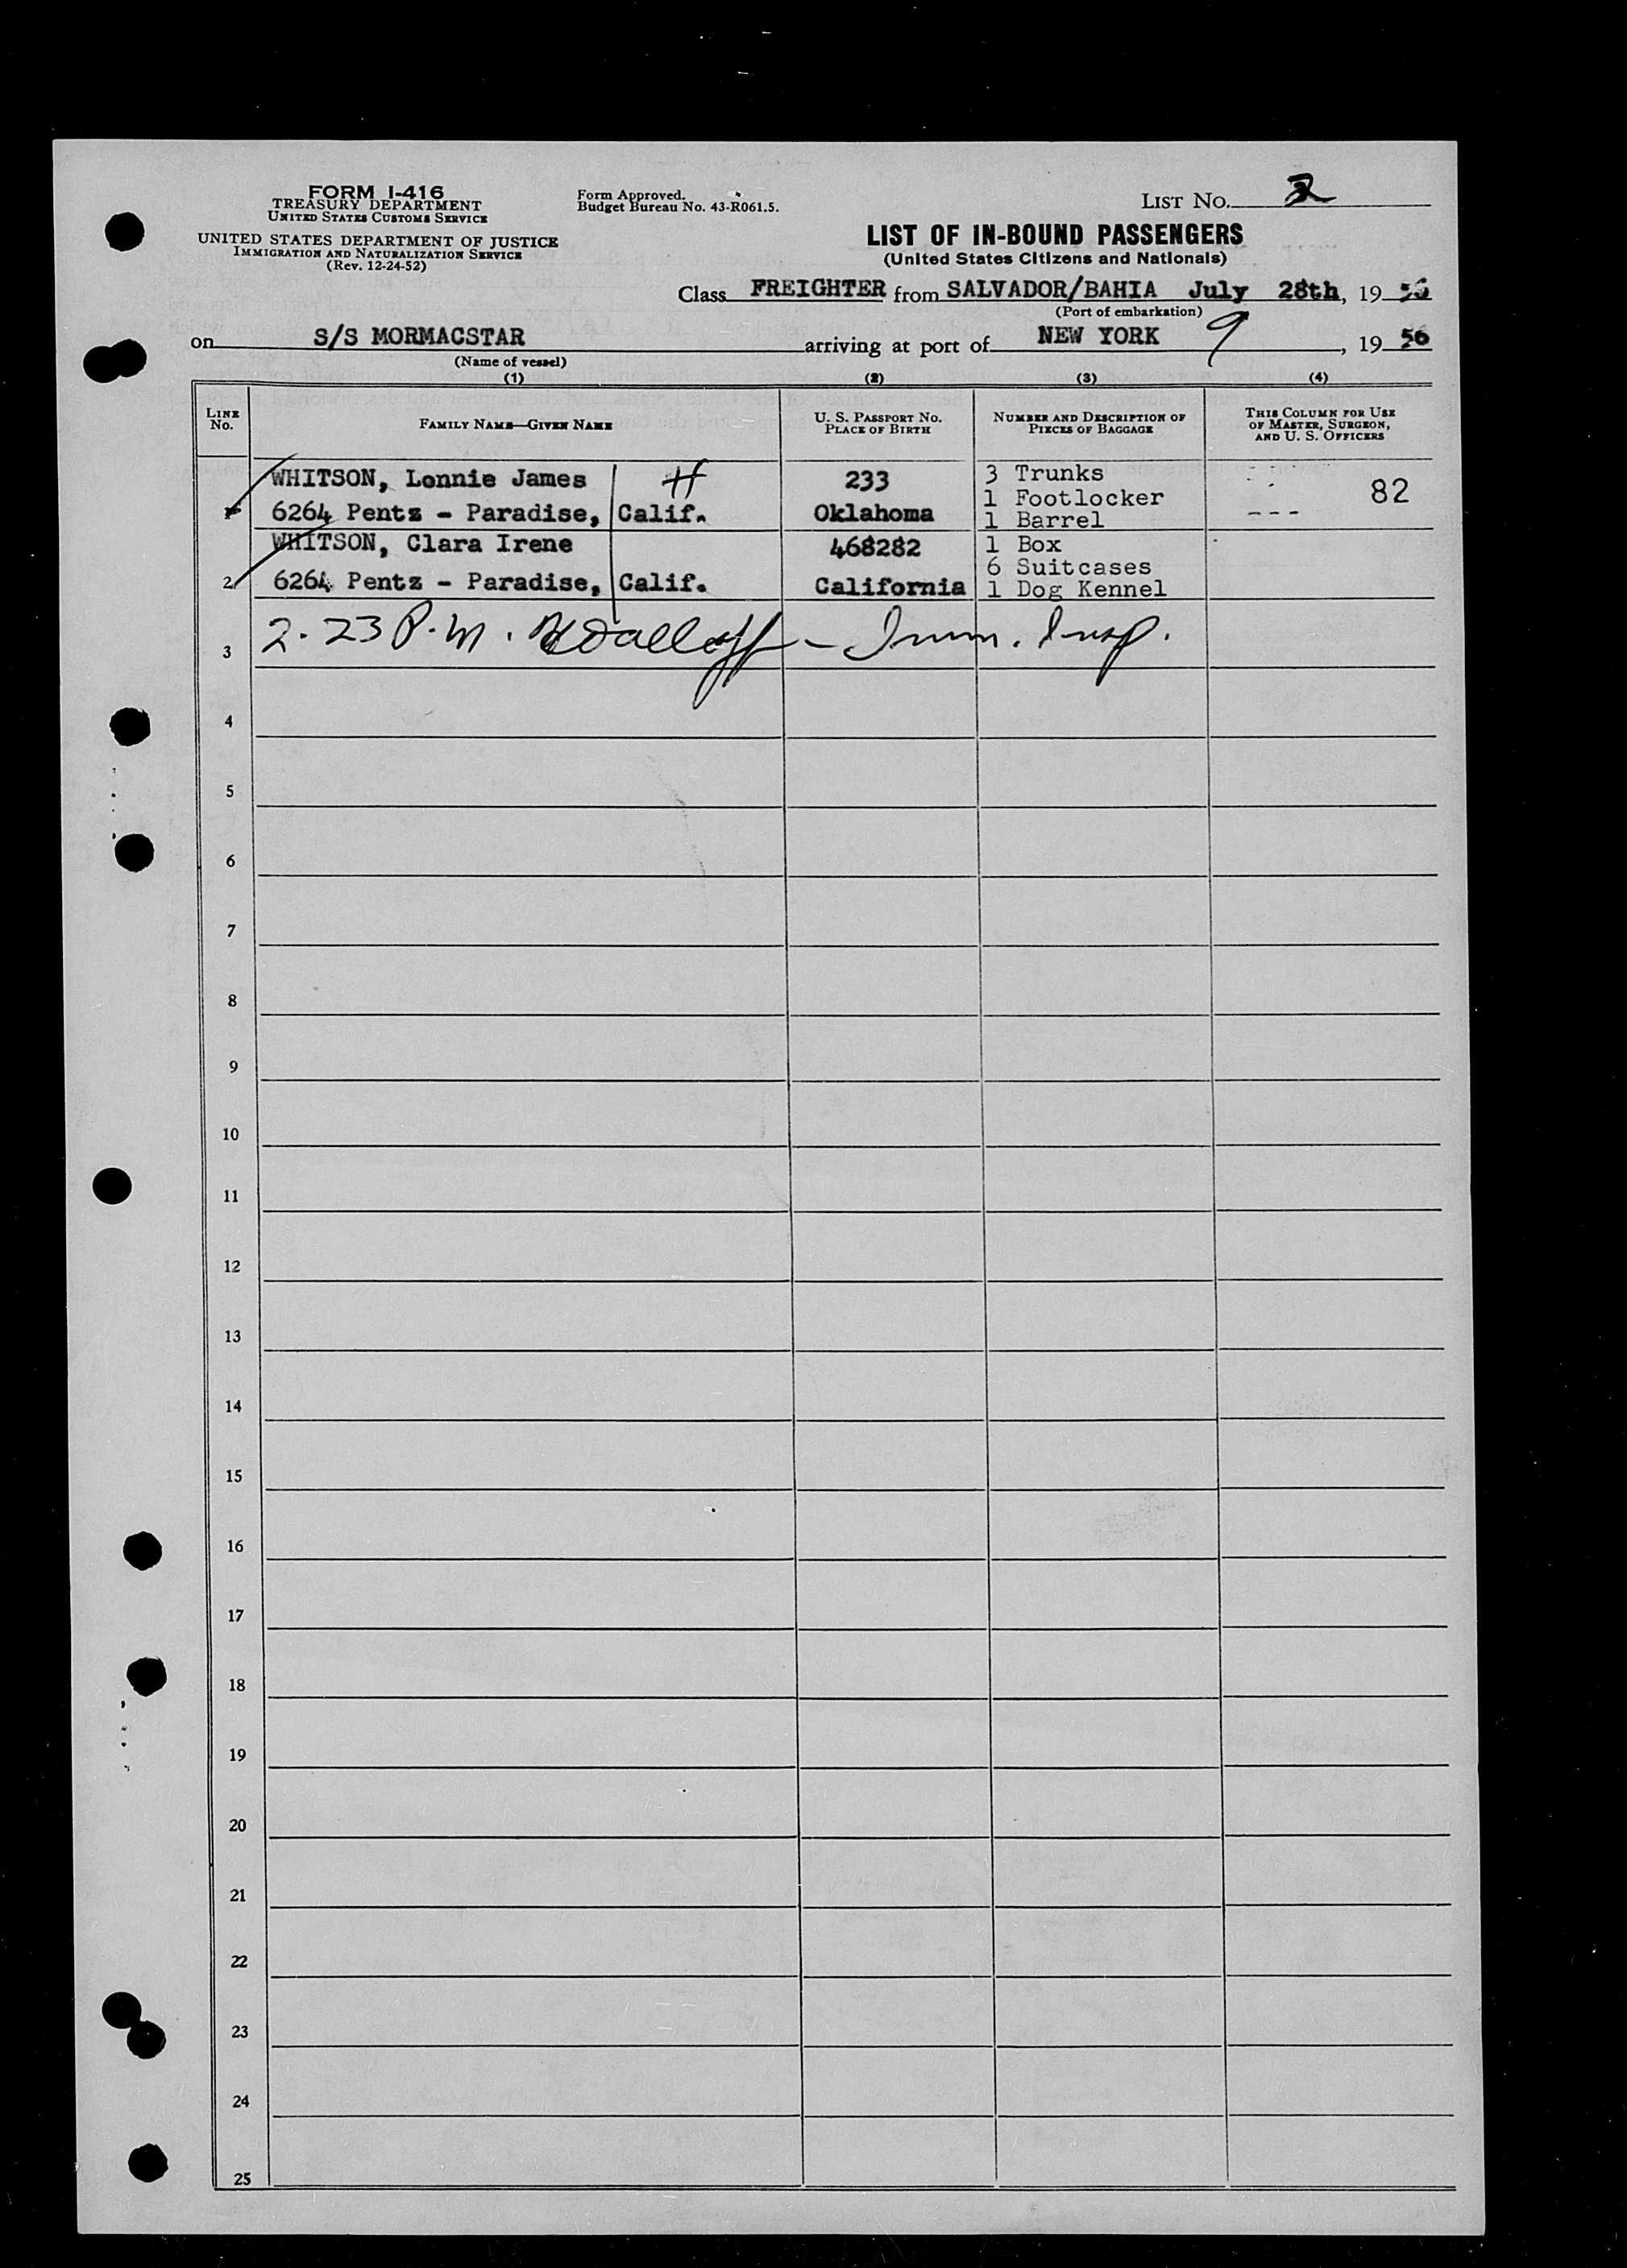 FORM I-416
TREASURY DEPARTMENT
UNITED STATES CUSTOMS SERVICE
UNITED STATES DEPARTMENT OF JUSTICE
IMMIGRATION AND NATURALIZATION SERVICE
(Rev. 12-24-52)
Form Approved.
Budget Bureau No. 43-R061.5.
LIST No. 2
LIST OF IN-BOUND PASSENGERS
(United States Citizens and Nationals)
Class FREIGHTER from SALVADOR/BAHIA July 28th, 19 56
(Port of embarkation)
on S/S MORMACSTAR arriving at port of NEW YORK 9, 19 56
(Name of vessel)
(1) (2) (3) (4)
LINE No. FAMILY NAME—GIVEN NAME U. S. PASSPORT No. PLACE OF BIRTH NUMBER AND DESCRIPTION OF PIECES OF BAGGAGE THIS COLUMN FOR USE OF MASTER, SURGEON, AND U. S. OFFICERS
WHITSON, Lonnie James H 233 3 Trunks
1 Footlocker 82
1 6264 Pentz - Paradise, Calif. Oklahoma 1 Barrel
WHITSON, Clara Irene 468282 1 Box
6 Suitcases
2 6264 Pentz - Paradise, Calif. California 1 Dog Kennel
3 2.23 P.M. - Imm. Insp.
4
5
6
7
8
9
10
11
12
13
14
15
16
17
18
19
20
21
22
23
24
25